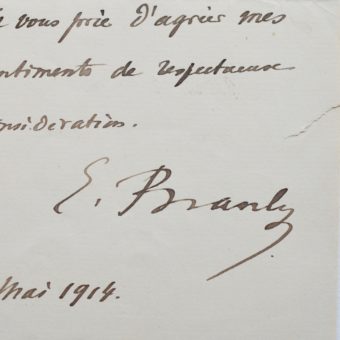 vous prie d'agréer mes
sentiments de respectueuse
considération.
E. Branly
Mai 1914.